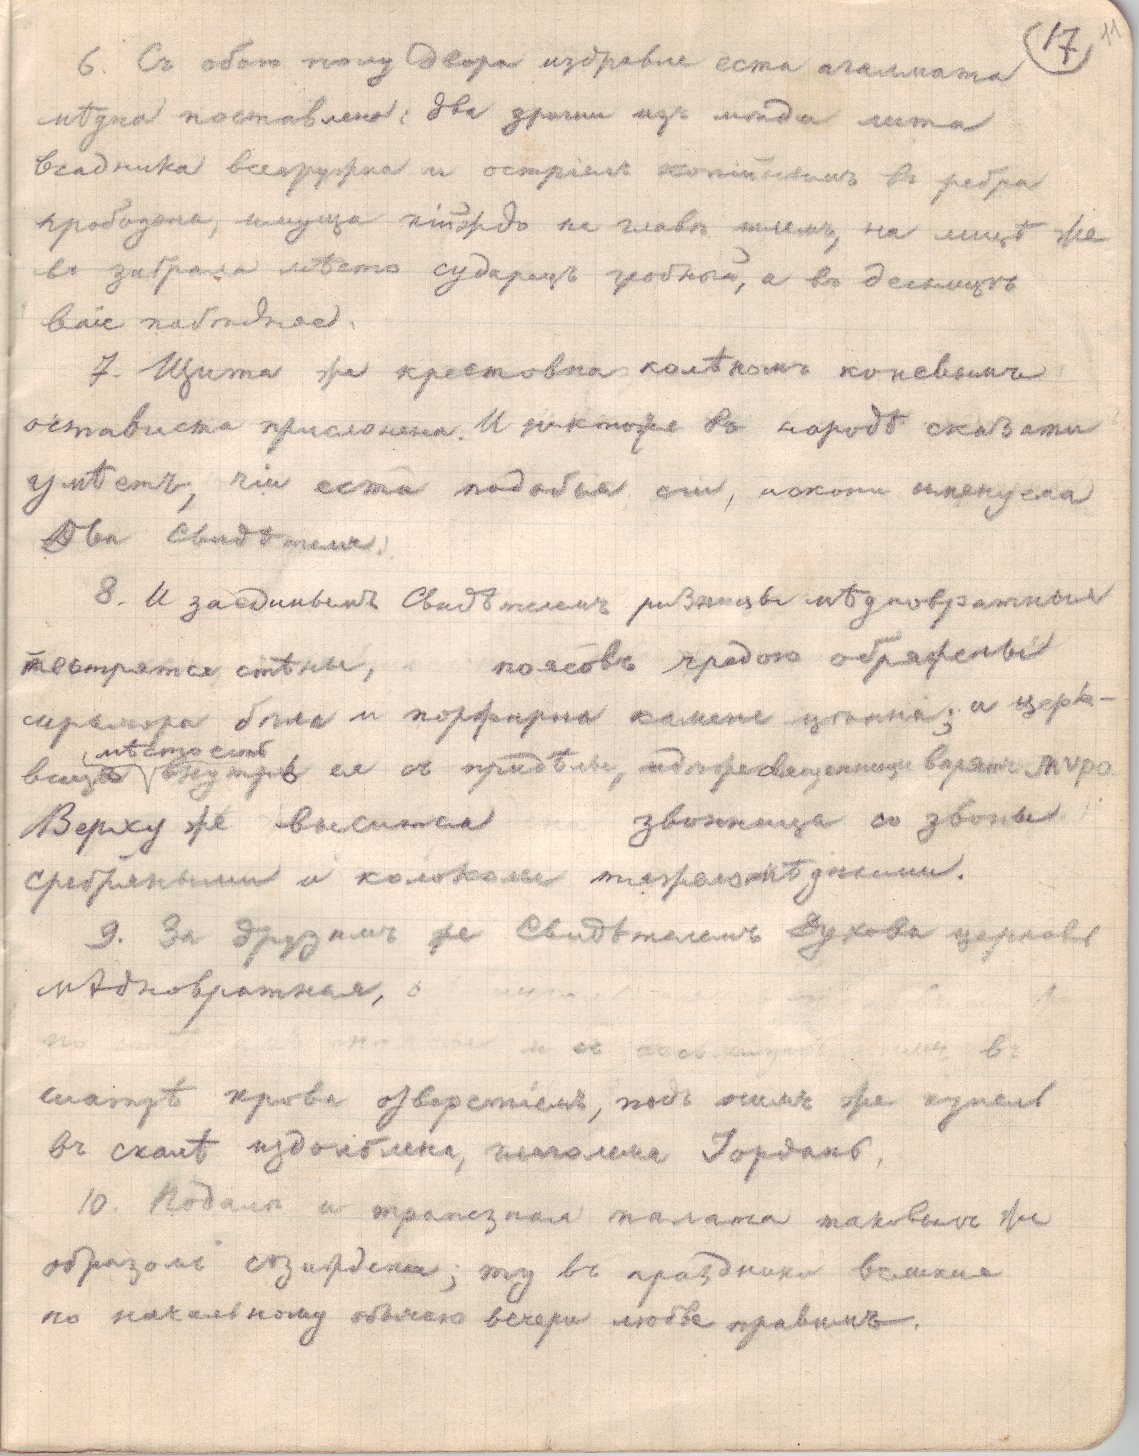 (17) 11
6. Съ обою полу двора издревле еста агалмата
мѣдна поставлена: два друзи изъ мѣди лита
всадника всеоружна и остріемъ копійнымъ въ ребра
прободена, имуща кійждо на главѣ шлемъ, на лицѣ же
въ забрала мѣсто сударецъ гробный, а въ десницѣ
ваіе побѣдное.
7. Щита же крестовна колѣномъ коневымъ
остависта прислонена. И никтоже въ народѣ сказати
умѣетъ, чіи еста подобія сіи, искони именуема
Два Свидѣтеля.
8. И заединымъ Свидѣтелемъ ризницы мѣдновратныя
пестрятся стѣны, поясовъ чредою обряжены
мрамора бѣла и порфирна камене цѣпна; а церк-
вица внутрь ея съ придѣлы, идѣже священници варятъ мѵро
мѣсто еѣ
Верху же высится звонница со звоны
сребряными и колоколы тяжеломѣдными.
9. За друзимъ же Свидѣтелемъ Духова церковь
мѣдновратная,
въ
матѣ крова отверстіемъ, подъ нимъ же купель
въ скалѣ издолблена, глаголема Іорданъ.
10. Подалѣ и трапезная палата таковымъ же
образомъ созиждена; ту въ праздники великіе
по начальному обычаю вечери любве правимъ.